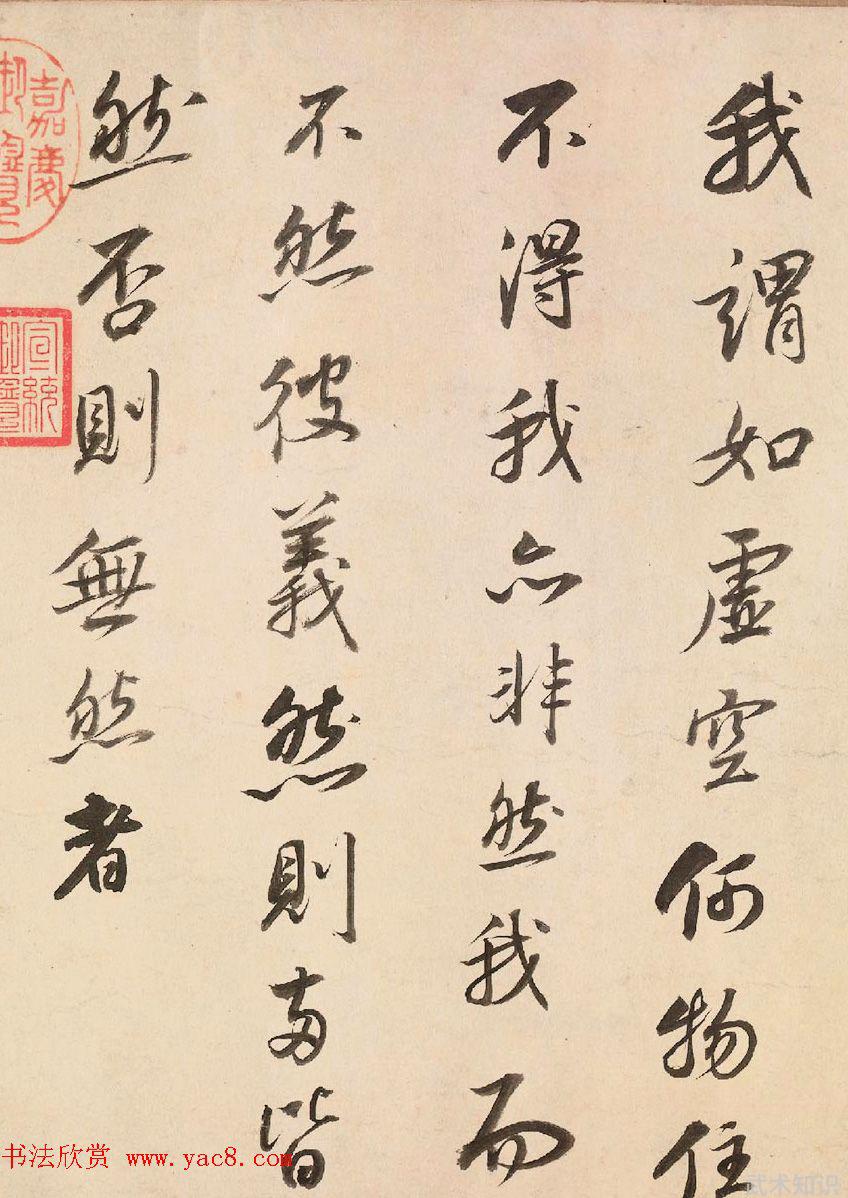 我謂如虛空何物住
不得我亦非然我而
不然彼義然則兩皆
然否則無然者
嘉慶御覽之寶
宣統御覽
书法欣赏 www.yac8.com
武术知识